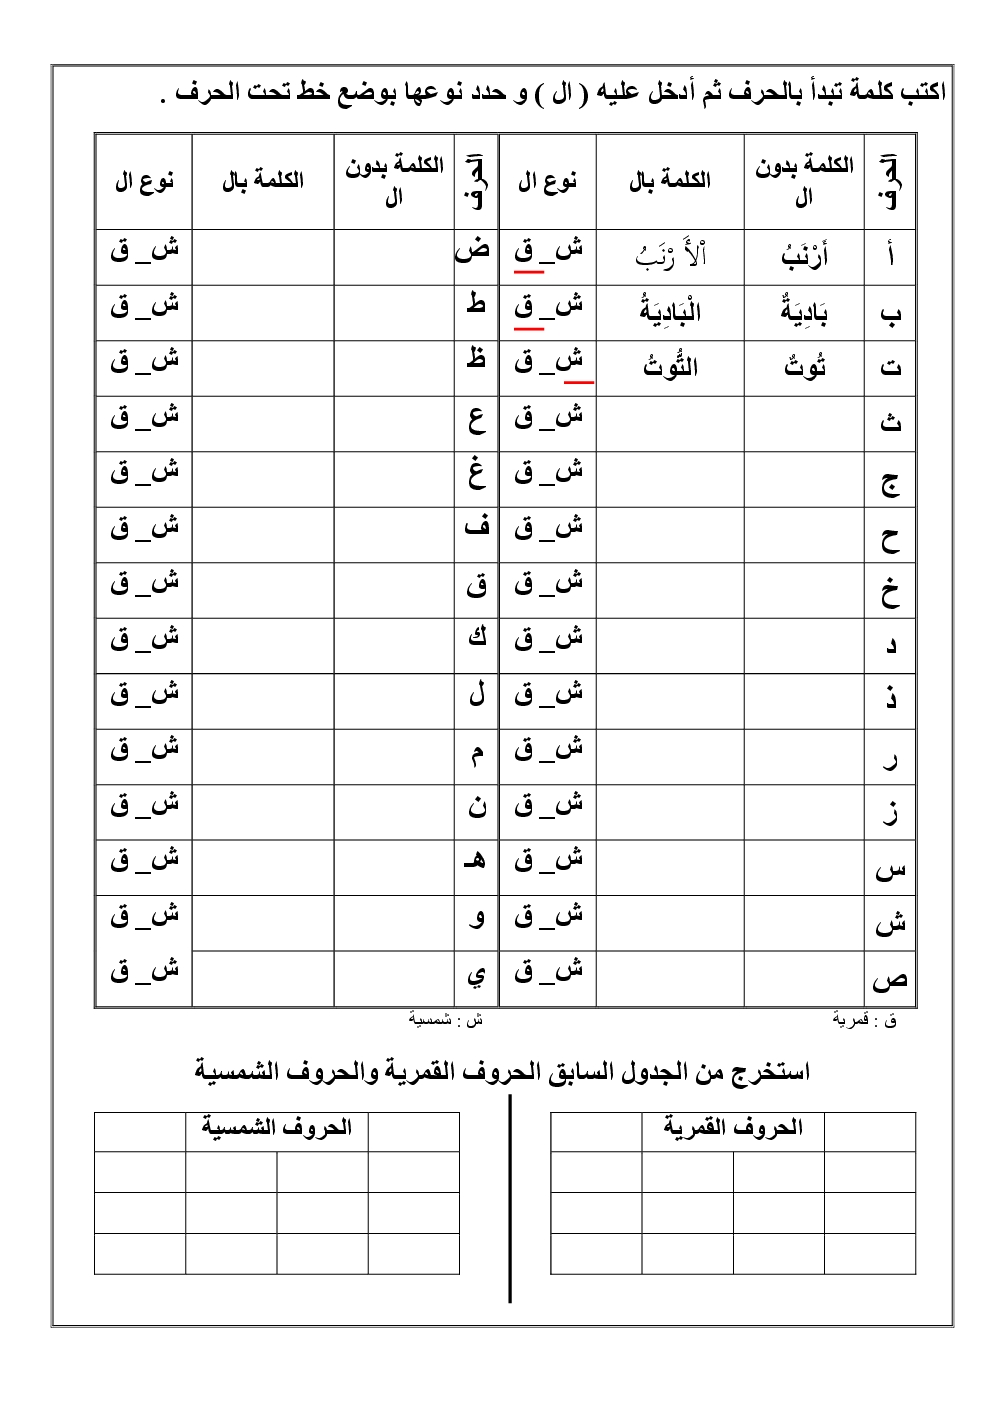 اكتب كلمة تبدأ بالحرف ثم أدخل عليه ( ال ) و حدد نوعها بوضع خط تحت الحرف .
الحرف الكلمة بدون ال الكلمة بال نوع ال الحرف الكلمة بدون ال الكلمة بال نوع ال
أ أَرْنَبُ ٱلأَرْنَبُ ش_ ق ض ش_ ق
ب بَادِيَةٌ الْبَادِيَةُ ش_ ق ط ش_ ق
ت تُوتٌ التُّوتُ ش_ ق ظ ش_ ق
ث ش_ ق ع ش_ ق
ج ش_ ق غ ش_ ق
ح ش_ ق ف ش_ ق
خ ش_ ق ق ش_ ق
د ش_ ق ك ش_ ق
ذ ش_ ق ل ش_ ق
ر ش_ ق م ش_ ق
ز ش_ ق ن ش_ ق
س ش_ ق هـ ش_ ق
ش ش_ ق و ش_ ق
ص ش_ ق ي ش_ ق
ق : قمرية ش : شمسية
استخرج من الجدول السابق الحروف القمرية والحروف الشمسية
الحروف القمرية الحروف الشمسية